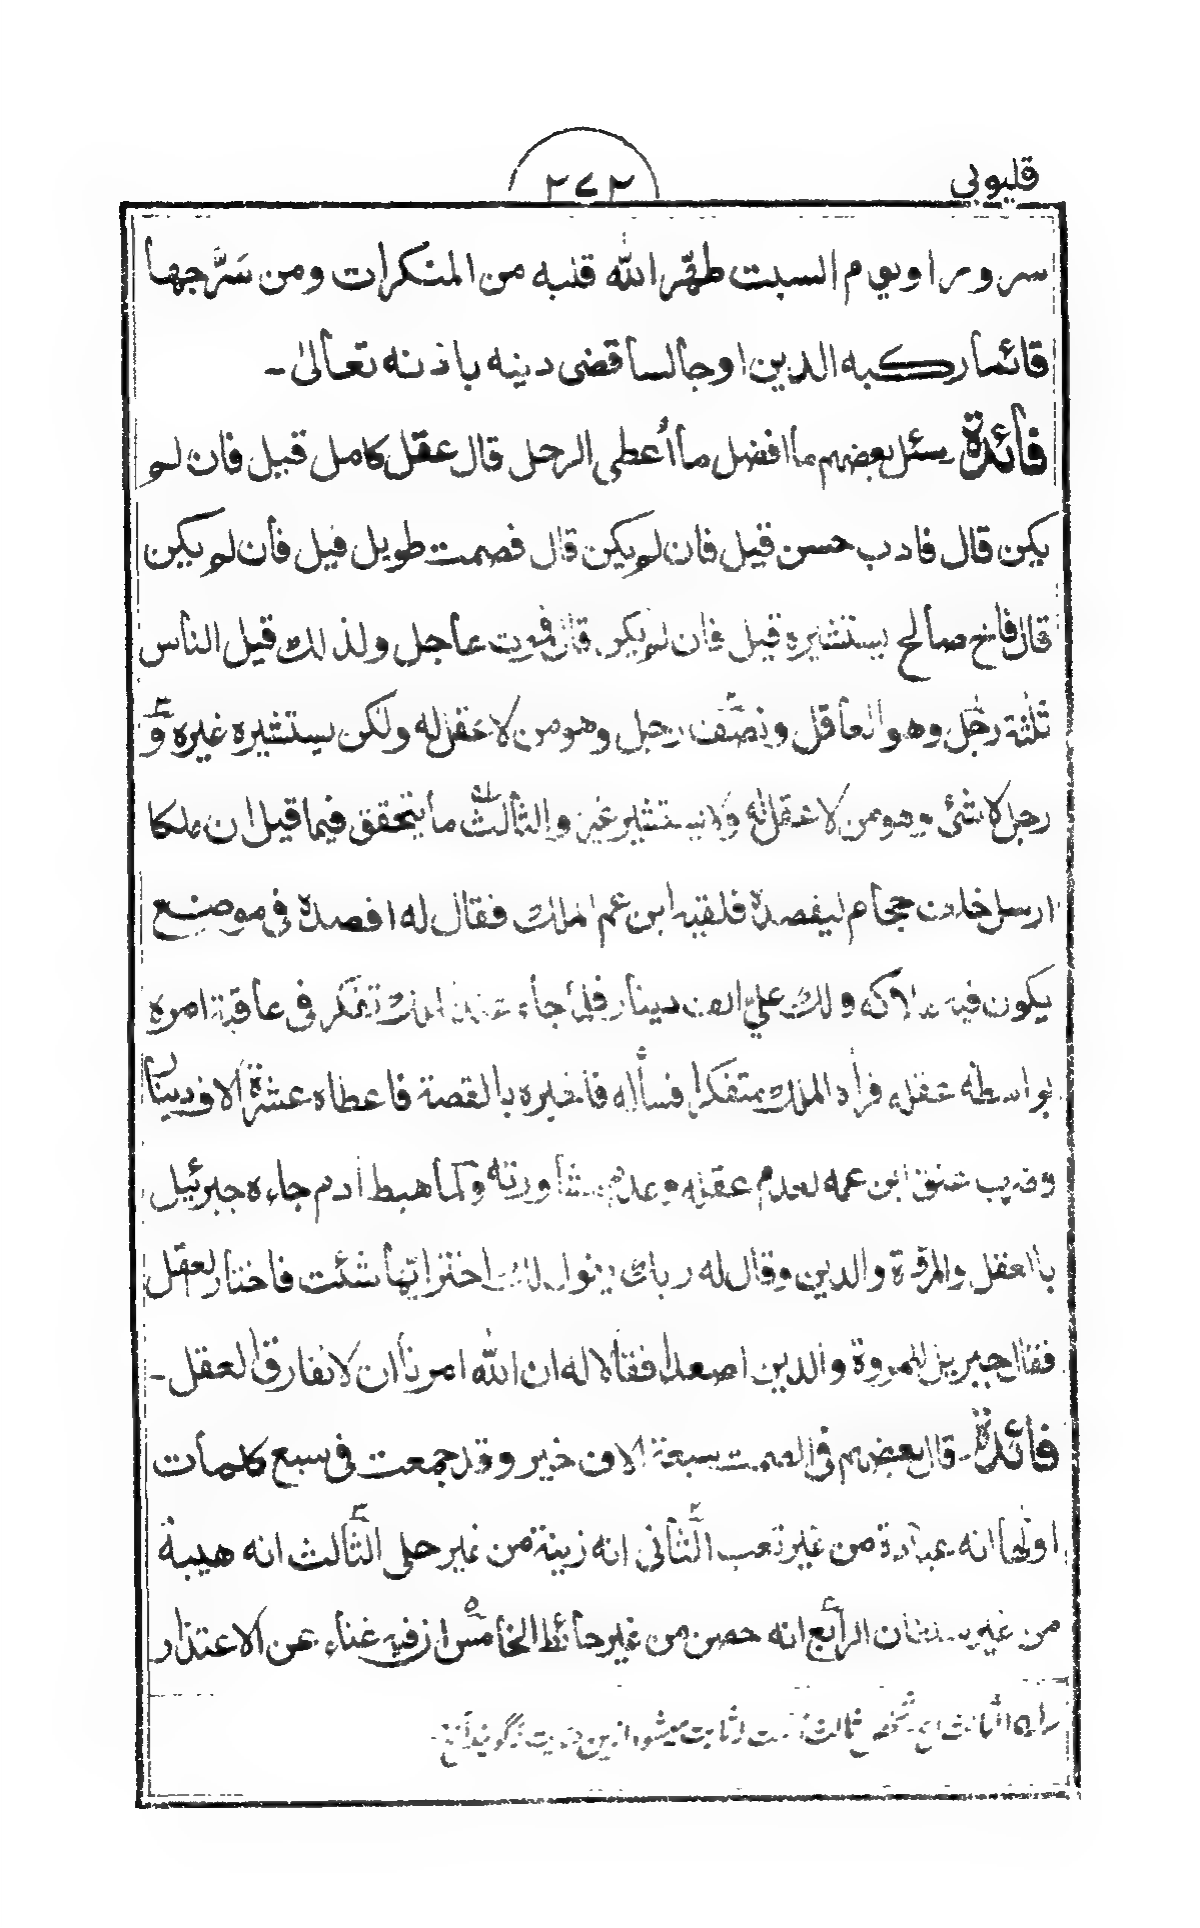 قليوبي
٢٧٢
سرورا ويوم السبت طهّر الله قلبه من المنكرات ومن سَرَّحها
قائما ركبه الدين اوجالسا قضى دينه باذنه تعالىٰ -
فائدة سئل بعضهم ما افضل ما اُعطى الرجل قال عقل كامل قيل فان لم
يكن قال فادب حسن قيل فان لم يكن قال فصمت طويل قيل فان لم يكن
قال فاخ صالح يستشيره قيل فان لم يكن قال فموت عاجل ولذلك قيل الناس
ثلثة رجُل وهو العاقل ونصف رجل وهو من لا عقل له ولكن يستشيره غيره وَ
رجل لا شئ وهو من لا عقل له ولا يستشير غيره والثالث ما يتحقق فيما قيل ان ملكا
ارسل خلف حجام ليفصده فلقيه ابن عم الملك فقال له افصده في موضع
يكون فيه هلاكه ولك عليّ الف دينار فلما جاء عند الملك تفكر في عاقبة امره
بواسطه عقله فراٰه الملك متفكرا فسأله فاخبره بالقصة فاعطاه عشرة آلاف دينار
وضرب عنق ابن عمه لعدم عقله وعدم مشاورته ولما هبط اٰدم جاءه جبرئيل
بالعقل والمروّة والدين وقال له ربك يقول لك اختر ايّها شئت فاختار العقل
فقال جبريل للمروة والدين اصعدا فقالا له ان الله امرنا ان لا نفارق العقل -
فائدة - قال بعضهم في الصمت سبعة آلاف خير وقد جمعت في سبع كلمات
اولها انه عبادة من غير تعب الثاني انه زينة من غير حلى الثالث انه هيبة
من غير سلطان الرابع انه حصن من غير حائط الخامس ان فيه غناء عن الاعتذار